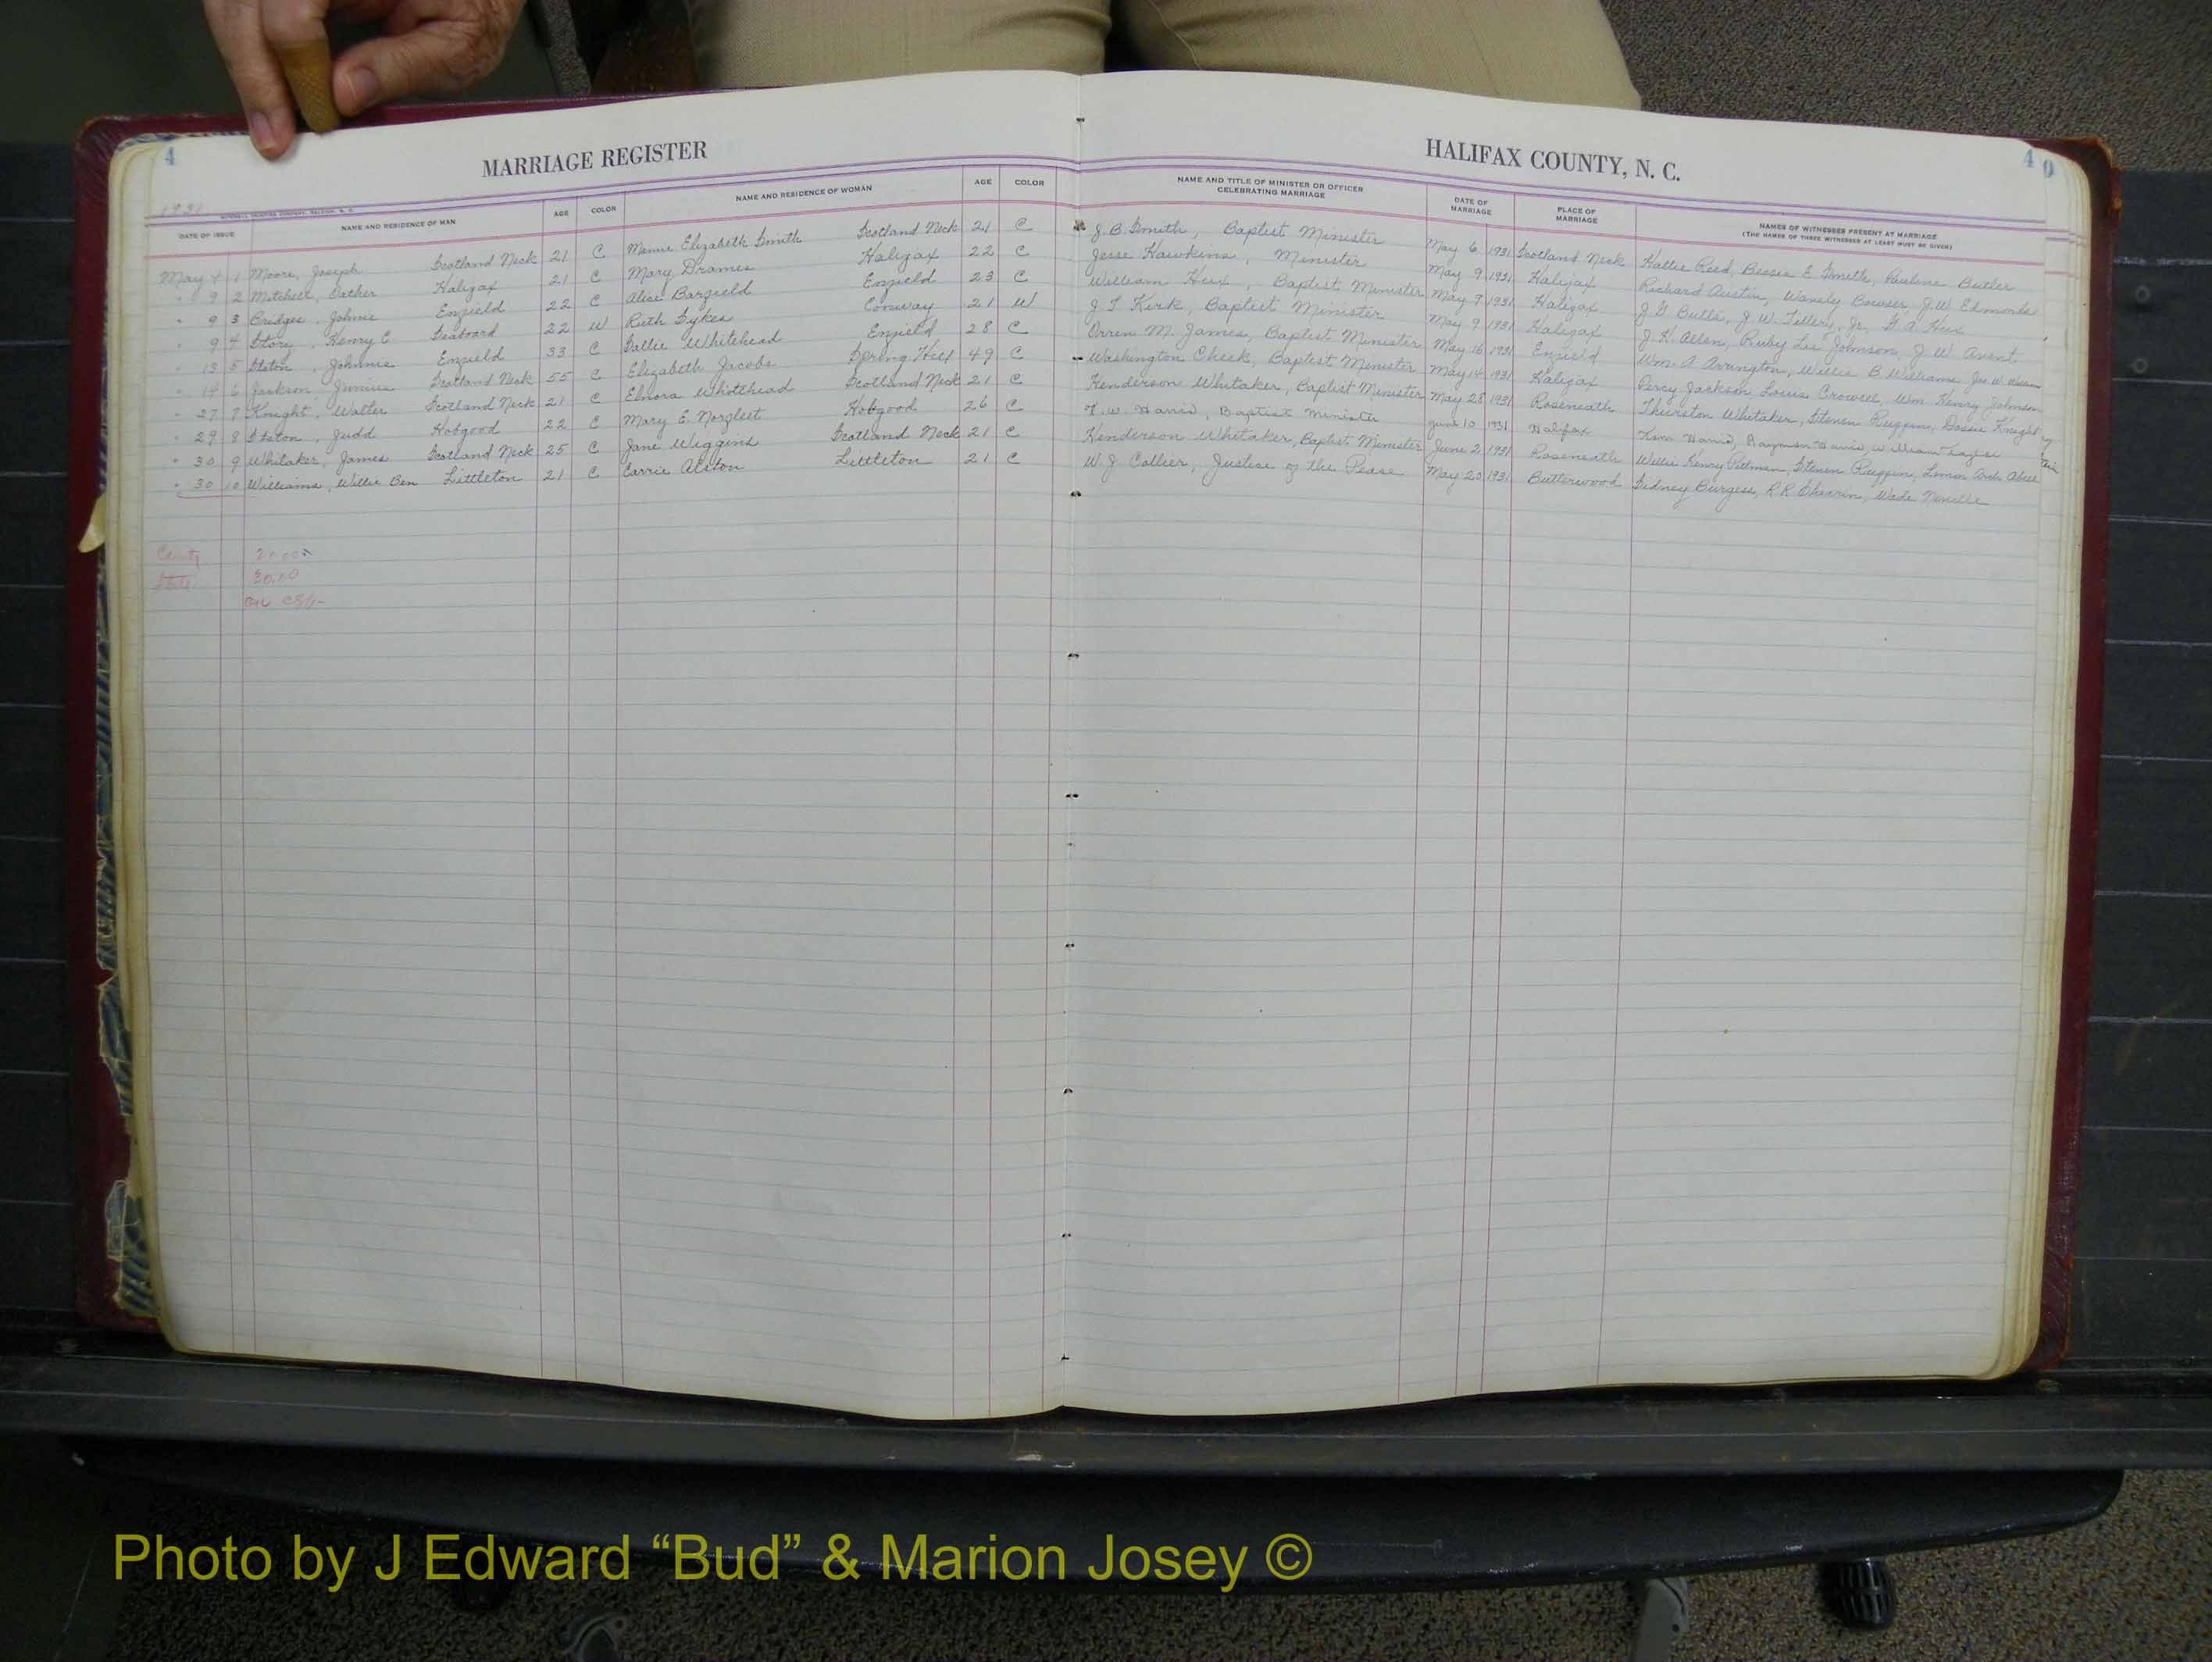 4
40
MARRIAGE REGISTER
HALIFAX COUNTY, N. C.
1931
DATE OF ISSUE NAME AND RESIDENCE OF MAN AGE COLOR NAME AND RESIDENCE OF WOMAN AGE COLOR NAME AND TITLE OF MINISTER OR OFFICER CELEBRATING MARRIAGE DATE OF MARRIAGE PLACE OF MARRIAGE NAMES OF WITNESSES PRESENT AT MARRIAGE
(THE NAMES OF THREE WITNESSES AT LEAST MUST BE GIVEN)
May 4 1 Moore, Joseph Scotland Neck 21 C Elizabeth Smith Scotland Neck 21 C J. B. Smith, Baptist Minister May 6 1931 Scotland Neck Hattie Reed, Bessie E. Smith, Pauline Butler
" 9 2 Mitchell, Halifax 21 C Mary Halifax 22 C Jesse Hawkins, Minister May 9 1931 Halifax Richard Austin, Bowser, J. W. Edmonds
" 9 3 Bridges, Johnie Enfield 22 C Alice Barfield Enfield 23 C William Hux, Baptist Minister May 9 1931 Halifax J. G. Butts, J. W. Tillery, Jr., Hux
" 9 4 Story, Henry C Seaboard 22 W Ruth Sykes Conway 21 W J. T. Kirk, Baptist Minister May 9 1931 Halifax J. H. Allen, Ruby Lee Johnson, J. W. Avent
" 13 5 Staton, Johnnie Enfield 33 C Sallie Whitehead Enfield 28 C Orren M. James, Baptist Minister May 16 1931 Enfield Wm. A. Arrington, Willie B. Williams
" 14 6 Jackson, Junius Scotland Neck 55 C Elizabeth Jacobs Spring Hill 49 C Washington Cheek, Baptist Minister May 14 1931 Halifax Percy Jackson, Louis Crowell, Wm Henry Johnson
" 27 7 Knight, Walter Scotland Neck 21 C Elnora Whitehead Scotland Neck 21 C Henderson Whitaker, Baptist Minister May 28 1931 Roseneath Thurston Whitaker, Steven Ruffin, Dossie Knight
" 29 8 Staton, Judd Hobgood 22 C Mary E. Norfleet Hobgood 26 C T. W. Harris, Baptist Minister June 10 1931 Halifax Harris, Rayman Harris, William
" 30 9 Whitaker, James Scotland Neck 25 C Jane Wiggins Scotland Neck 21 C Henderson Whitaker, Baptist Minister June 2 1931 Roseneath Willie Henry Pittman, Steven Ruffin
" 30 10 Williams, Willie Ben Littleton 21 C Carrie Alston Littleton 21 C W. J. Collier, Justice of the Pease May 30 1931 Butterwood Sidney Burgess, R. R. Wade Neville
County
State 30.00
Photo by J Edward “Bud” & Marion Josey ©